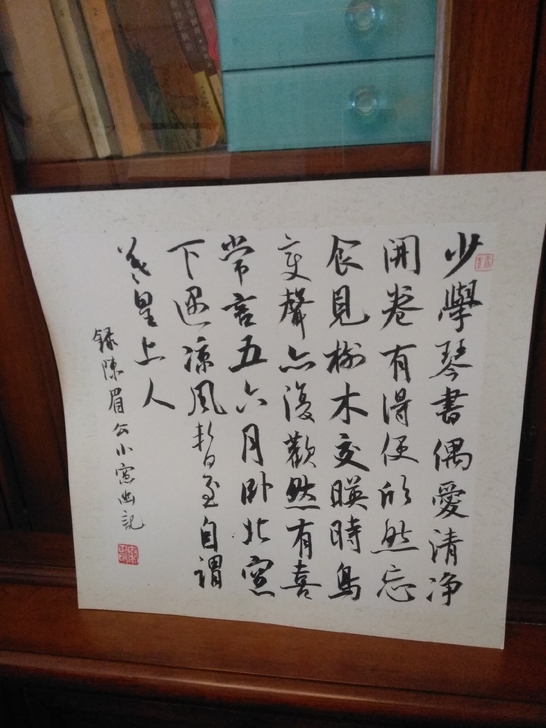 少學琴書偶愛清净
開卷有得便欣然忘
食見樹木交暎時鳥
变聲亦復歡然有喜
常言五六月卧北窓
下遇凉风暂至自謂
羲皇上人
録陳眉公小窓幽記